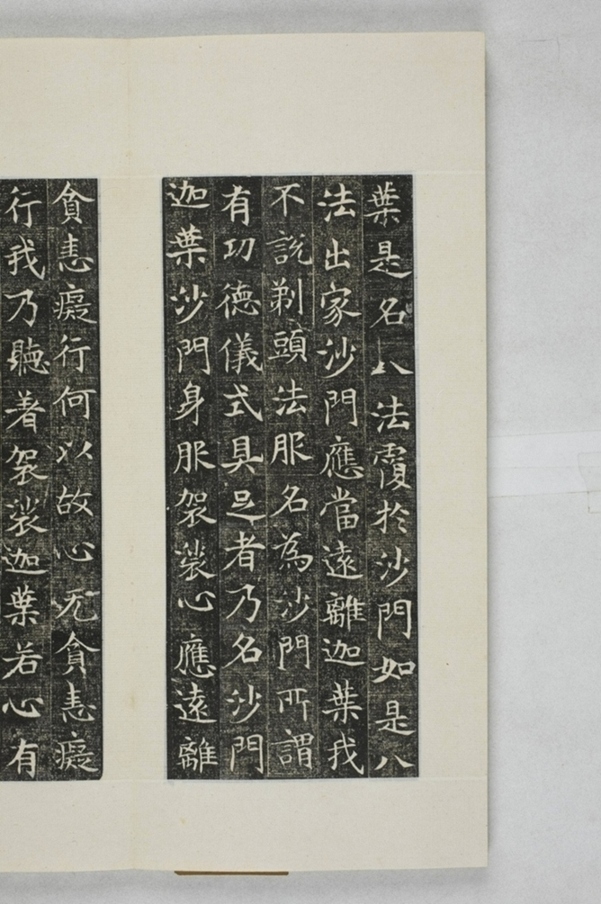 葉是名八法覆於沙門如是八
法出家沙門應當遠離迦葉我
不說剃頭法服名為沙門所謂
有功德儀式具足者乃名沙門
迦葉沙門身服袈裟心應遠離
貪恚癡行何以故心无貪恚癡
行我乃聽著袈裟迦葉若心有